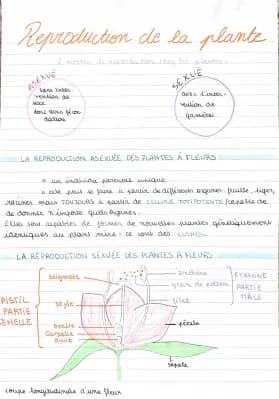 Reproduction de la plante
2 modes de reproduction chez les plantes:
ASEXUÉ
sans inter-
vention de
sexe
donc sans fécon
dation
SEXUÉ
avec l'inter-
vention de
gamètes
LA REPRODUCTION ASÉXUÉE DES PLANTES À FLEURS
o un individu parental unique
o elle peut se faire à partir de différents organes: feuille, tiges,
racines mais TOUJOURS à partir de CELLULE TOTIPOTENTE (capable de
de donner n'importe quels organes.
Elles sont capables de former de nouvelles plantes génétiquement
identiques au plant mère: ce sont des CLONES.
LA REPRODUCTION SÉXUÉE DES PLANTES À FLEURS
PISTIL
PARTIE
FEMELLE
stigmate
style
ovaire
Carpelle
ovule
anthère
grain de pollen
filet
ETAMINE
PARTIE
MÂLE
pétale
sépale
coupe longitudinale d'une fleur